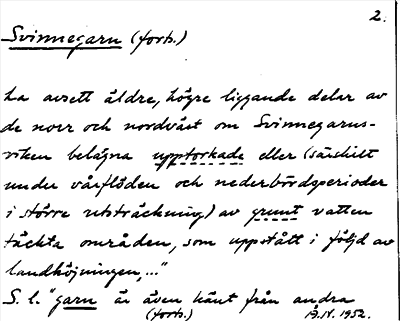 2.
Svinnegarn (forts.)
ha avsett äldre, högre liggande delar av
de norr och nordväst om Svinnegarns-
viken belägna upptorkade eller (särskilt
under vårflöden och nederbördsperioder
i större utsträckning) av grunt vatten
täckta områden, som uppstått i följd av
landhöjningen,..."
S. l. "garn är även känt från andra
(forts.) 13.IV. 1952.